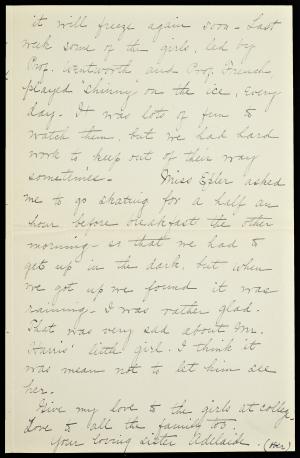 it will freeze again soon - Last
week some of the girls, led by
Prof. Wentworth and Prof. French
played shinny on the ice, Every
day. It was lots of fun to
watch them, but we had hard
work to keep out of their way
sometimes - Miss Egler asked
me to go skating for a half an
hour before breakfast the other
morning - so that we had to
get up in the dark, but when
we got up we found it was
raining - I was rather glad.
That was very sad about Mr.
Harris' little girl. I think it
was mean not to let him see
her.
Give my love to the girls at college
Love to all the family too.
Your loving sister Adelaide. (over)